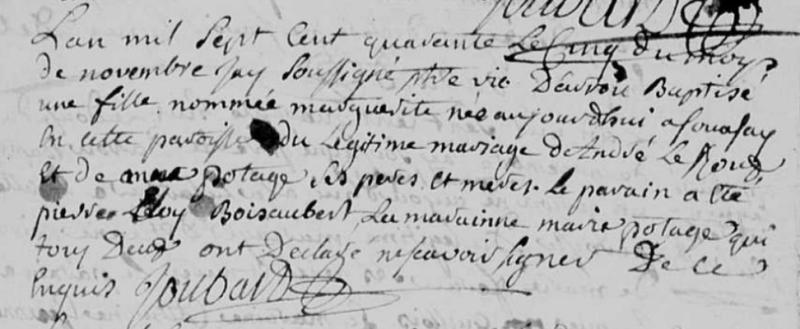 L'an mil sept cent quarante le cinq du moys
de novembre Jay soussigné ptre vic Baptisé
une fille nommée marguerite née aujourd'hui a
en cette paroisse du legitime mariage d'André Le Roux
Et de potage ses peres et meres. Le parain a été
pierre Eloy Boisaubert, La marainne marie potage qui
tous Deux ont Declare ne scavoir signer De ce
Enquis Joubard